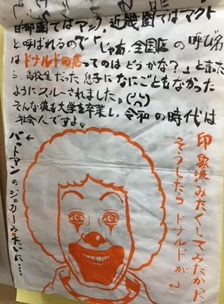 首都圏ではマック 近畿圏ではマクド
と呼ばれるので「じゃあ、全国区の呼び名
は ドナルドの店ってのはどうかな?」と言ったら、
高校生だった息子になにごともなかった
ようにスルーされました。
そんな彼も大学を卒業し、令和の時代は
社会人です。
印象派みたくしてみたかった
そうしたら ドナルドが、
バットマンのジョーカーみたいに…